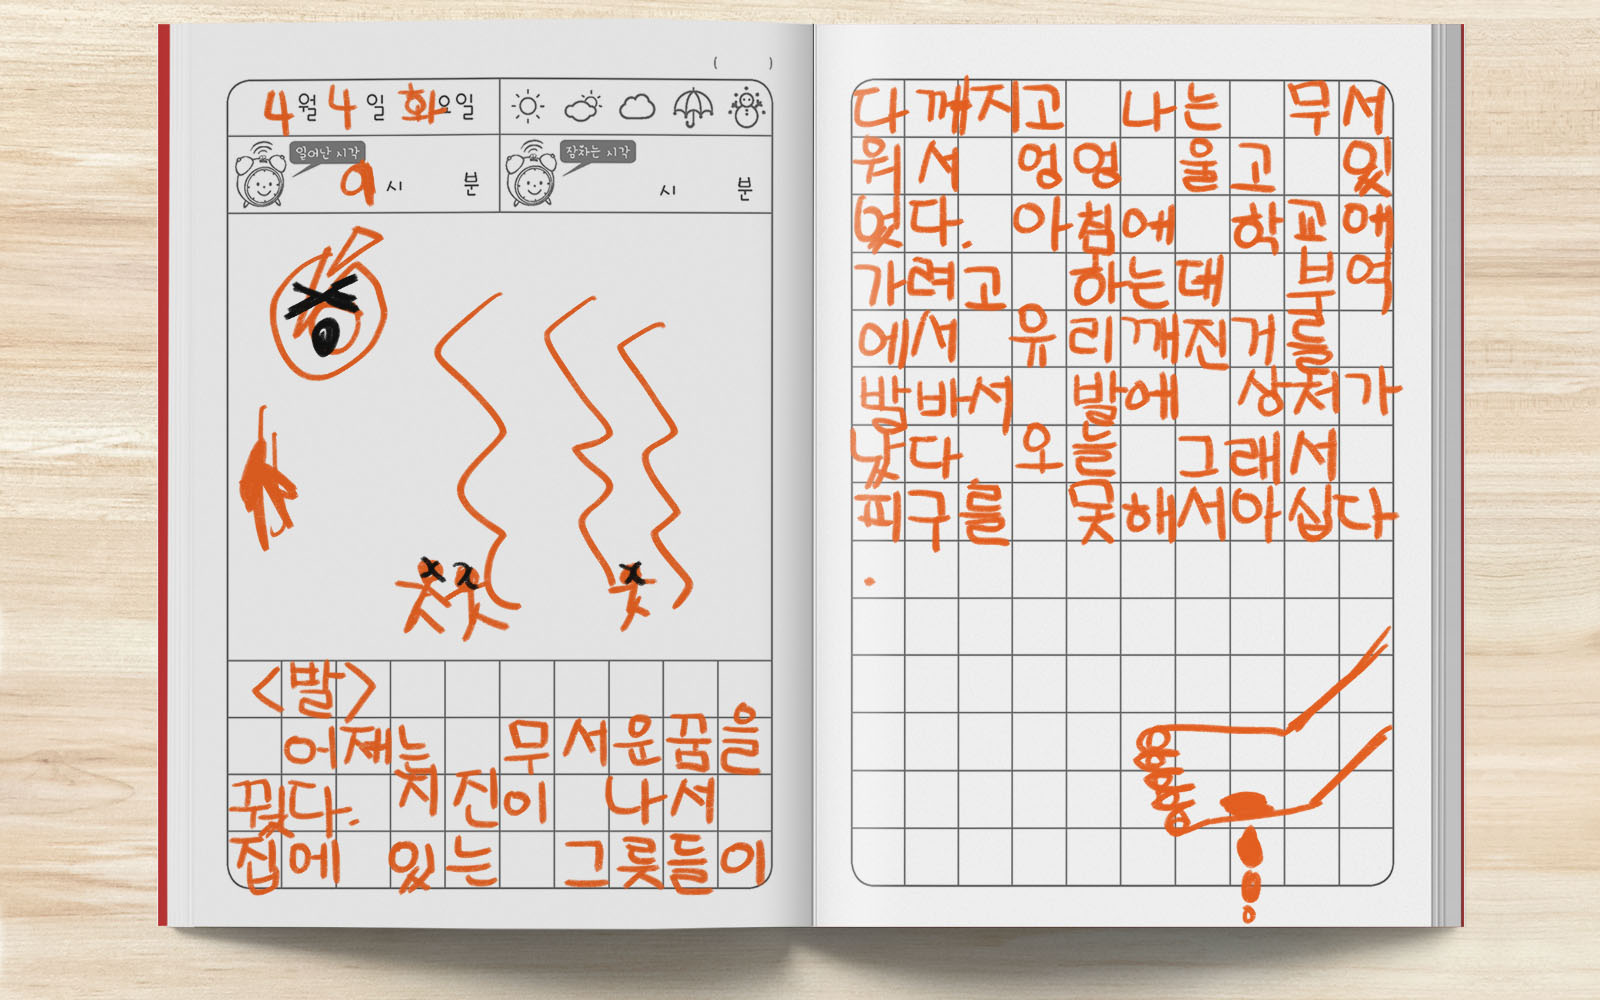 ( )
4월 4일 화요일
일어난 시각
9시 분
잠자는 시각
시 분
<발>
어제는 무서운꿈을
꿨다. 지진이 나서
집에 있는 그릇들이
다 깨지고 나는 무서
워서 엉엉 울고 있
었다. 아침에 학교에
가려고 하는데 부억
에서 유리깨진거를
발바서 발에 상처가
났다 오들 그래서
피구를 못해서아십다
.